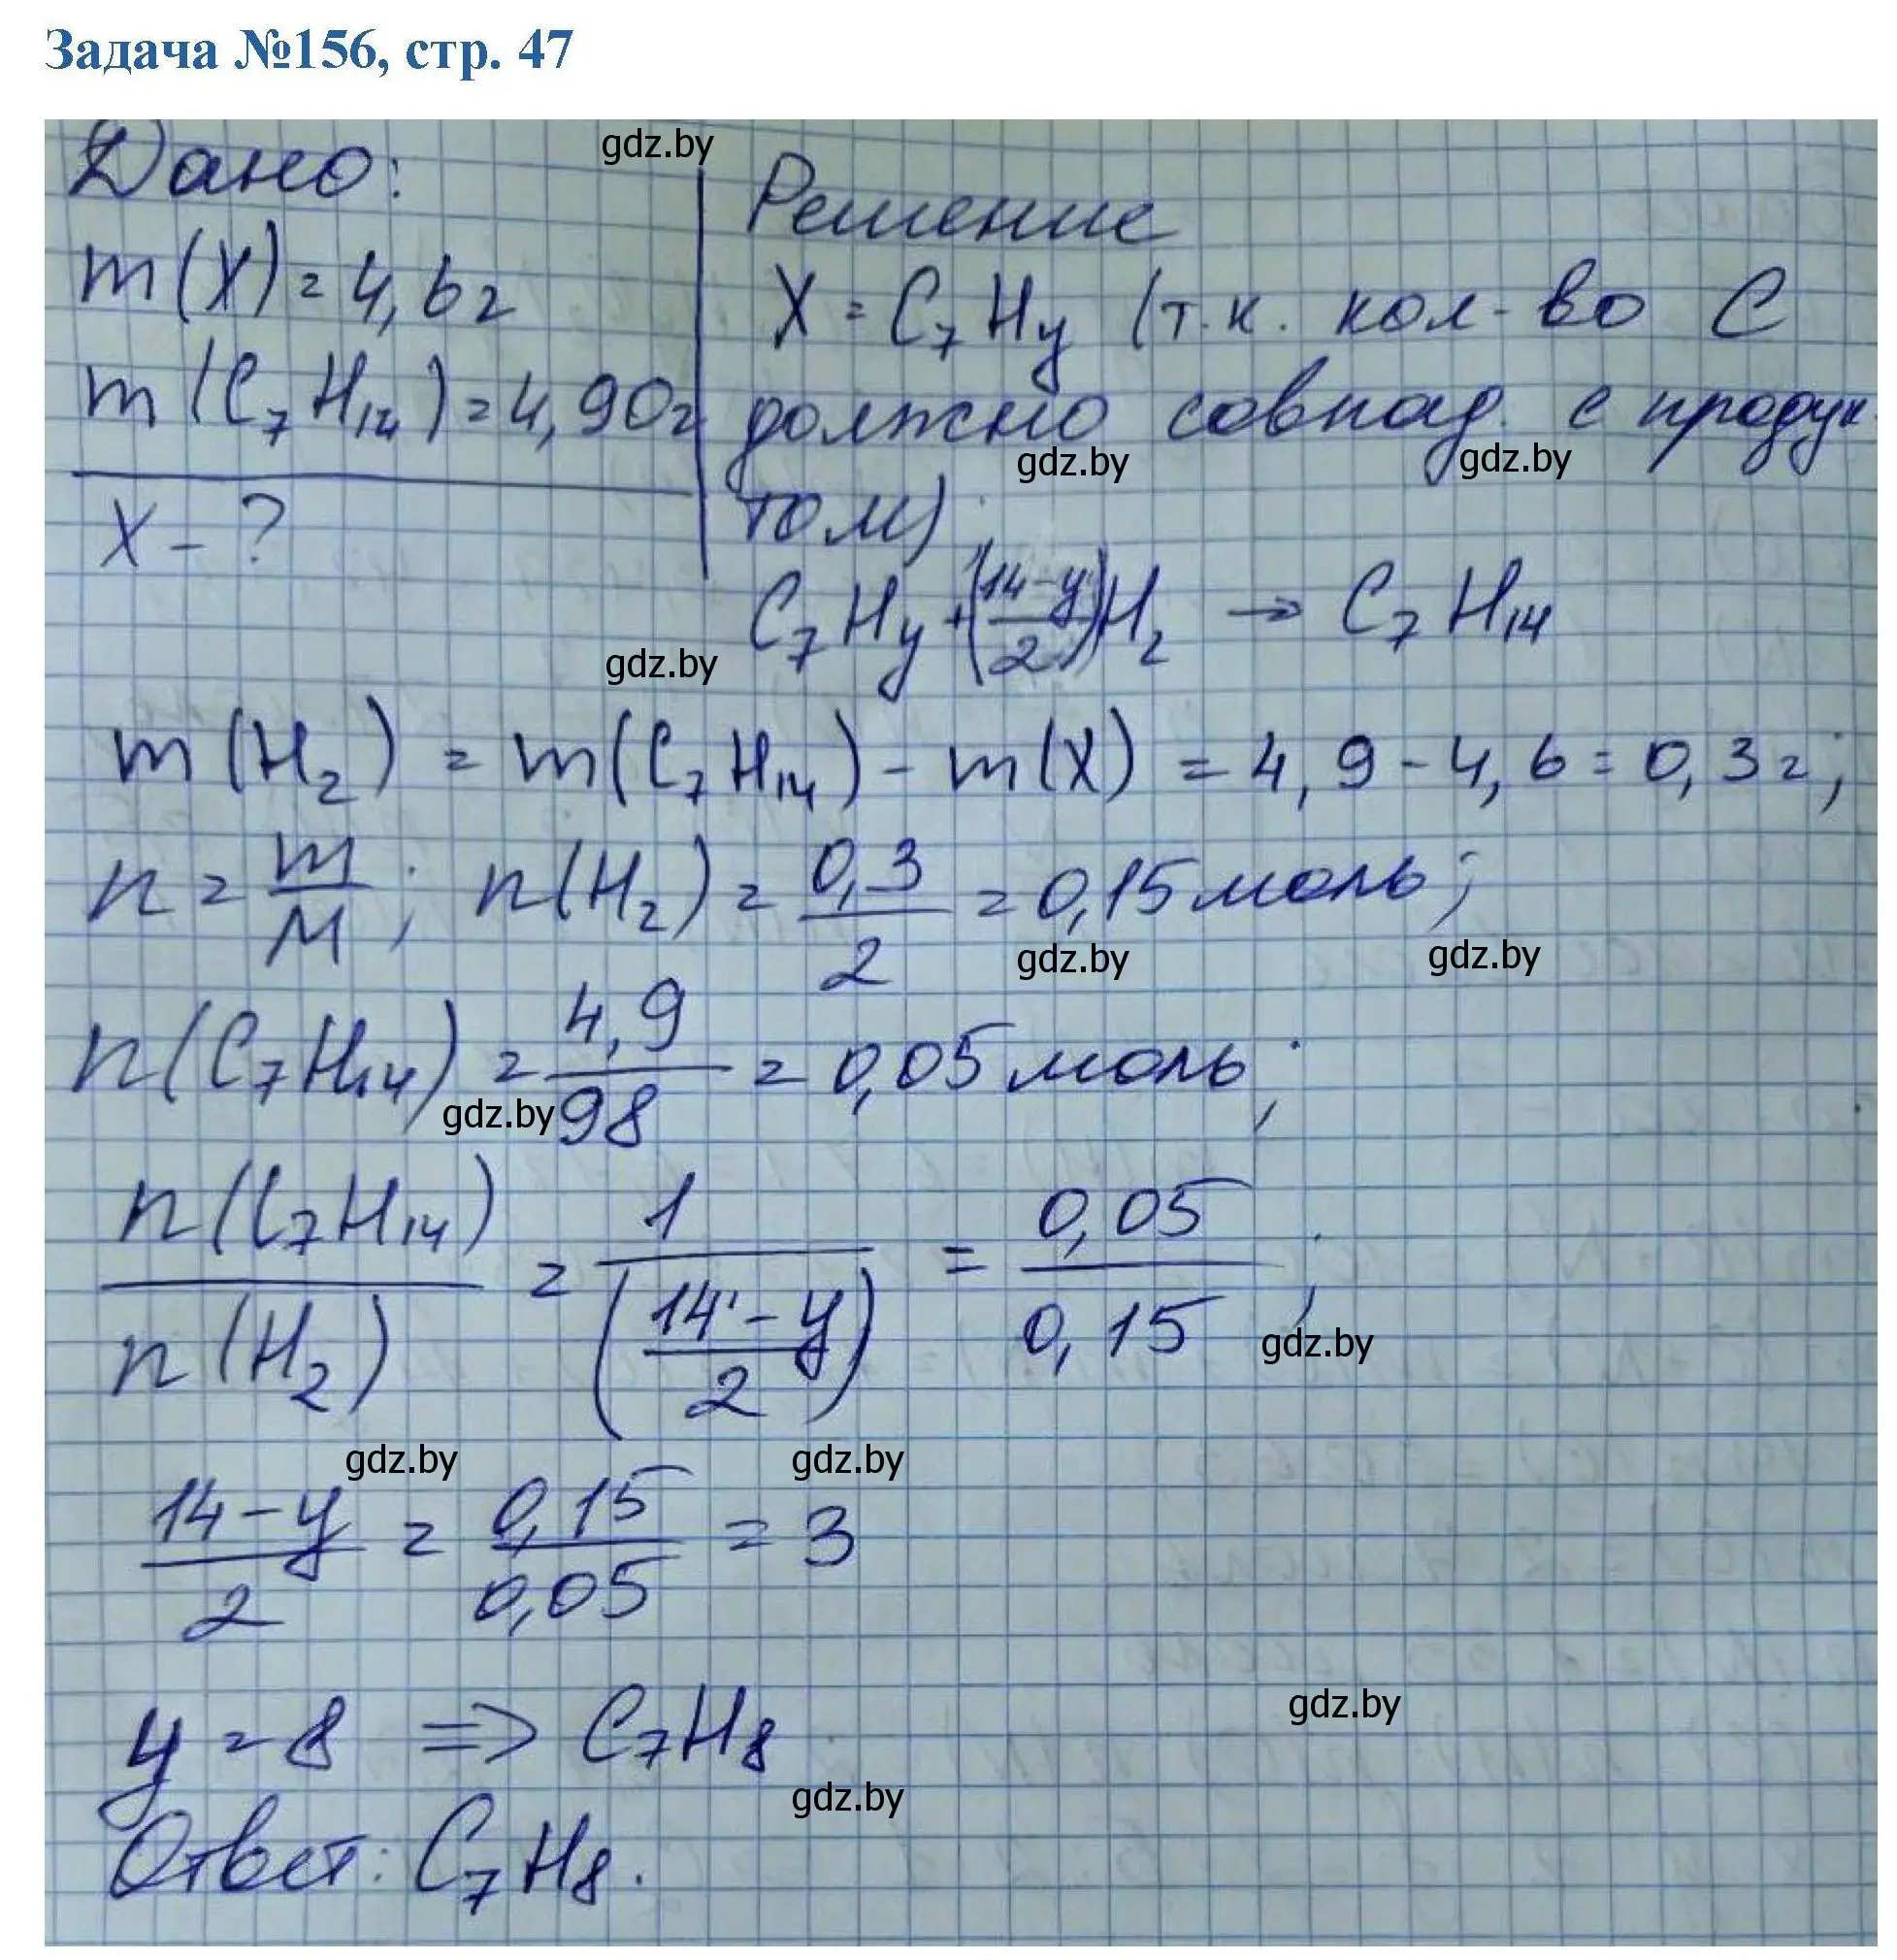 Задача №156, стр. 47
Дано:
gdz.by
Решение
m(X) = 4,6г
X = C₇Hy (т.к. кол-во C
m(C₇H₁₄) = 4,90г
должно совпад. с продук-
gdz.by gdz.by
X - ?
том);
C₇Hy + ((14-y)/2)H₂ → C₇H₁₄
gdz.by
m(H₂) = m(C₇H₁₄) - m(X) = 4,9 - 4,6 = 0,3г;
n = m/M; n(H₂) = 0,3/2 = 0,15 моль;
gdz.by gdz.by
n(C₇H₁₄) = 4,9/98 = 0,05 моль;
gdz.by
n(C₇H₁₄)/n(H₂) = 1/((14-y)/2) = 0,05/0,15;
gdz.by
gdz.by gdz.by
(14-y)/2 = 0,15/0,05 = 3
gdz.by
y = 8 => C₇H₈
gdz.by
Ответ: C₇H₈.